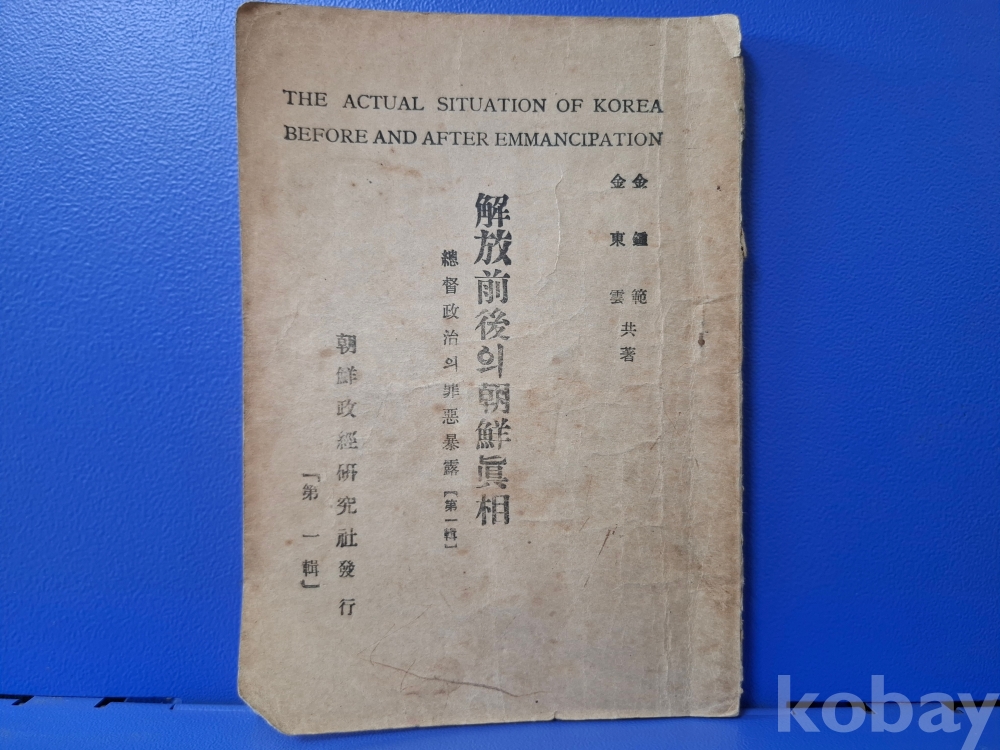 THE ACTUAL SITUATION OF KOREA
BEFORE AND AFTER EMMANCIPATION
金鍾範
金東雲
共著
解放前後의朝鮮眞相
總督政治의罪惡暴露【第一輯】
朝鮮政經硏究社發行
『第一輯』
kobay